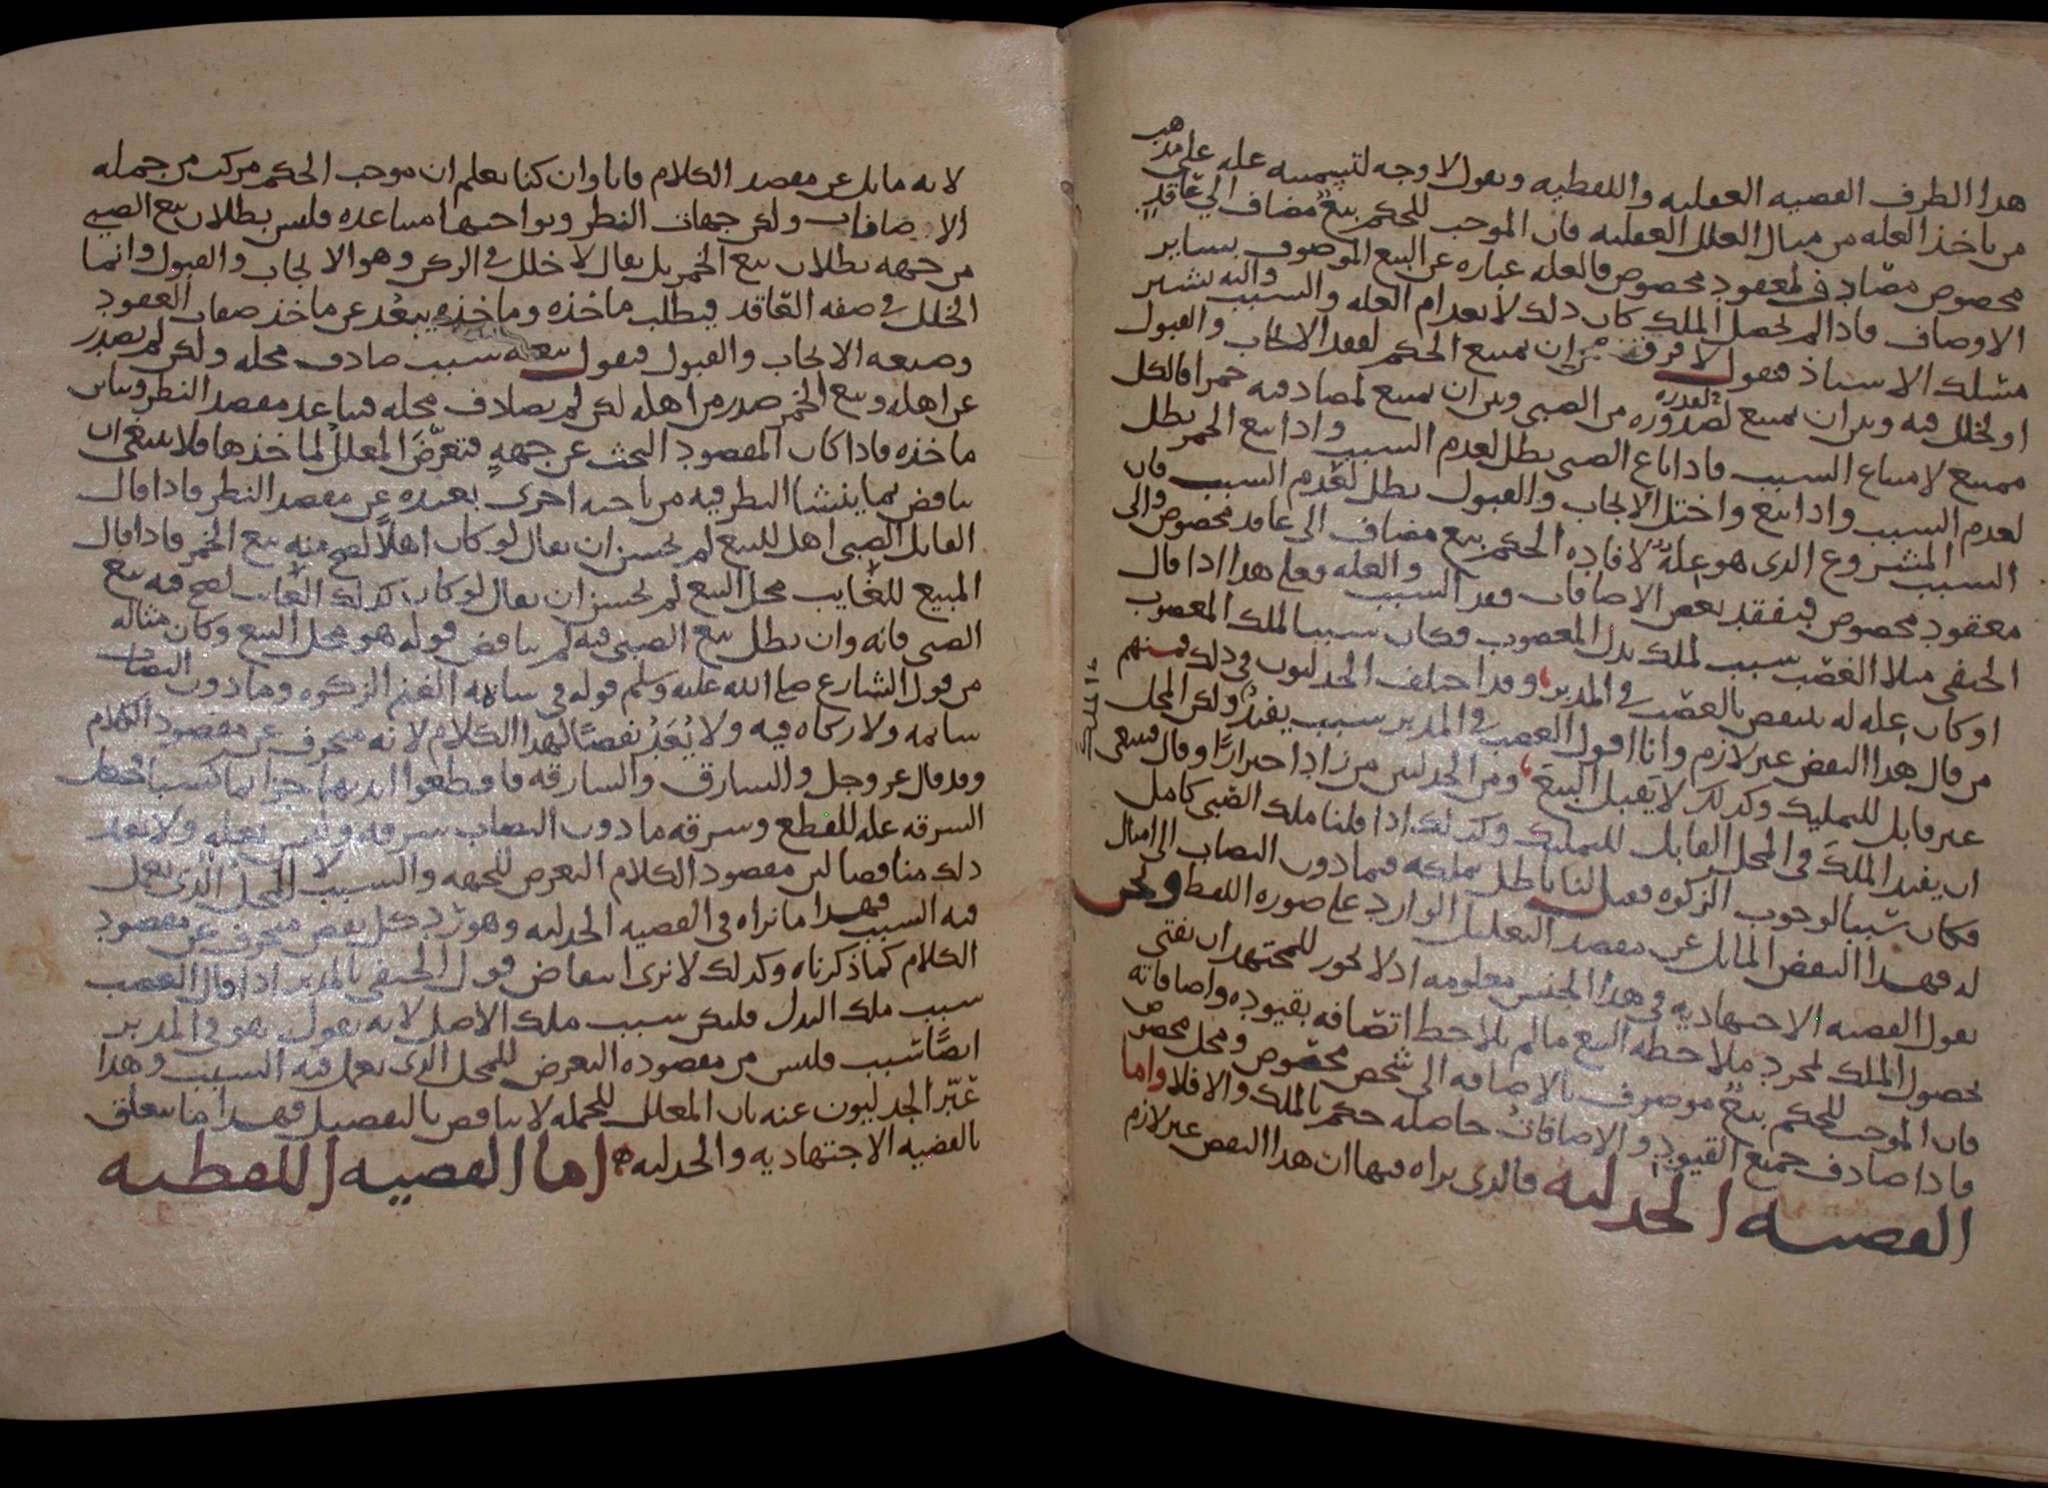 هذا الطرف القضيه العقليه واللفظيه ونقول لا وجه لتسميته عله على مذهب
من ياخذ العله من مثال العلل العقليه فان الموجب للحكم بيع مضاف الى عاقد
مخصوص مصادف لمعقود مخصوص فالعله عباره عن البيع الموصوف بساير
الاوصاف فاذا لم يحصل الملك كان ذلك لانعدام العله والسبب واليه يشير
مسلك الاستاذ فنقول لا فرق بين ان يمتنع الحكم لفقد الايجاب والقبول
او لخلل فيه وبين ان يمتنع لصدوره من الصبي وبين ان يمتنع لمصادفته خمرا فالكل
ممتنع لامتناع السبب فاذا باع الصبي بطل لعدم السبب واذا بيع الخمر بطل
لعدم السبب واذا بيع واختل الايجاب والقبول بطل لعدم السبب فان
السبب المشروع الذي هو عله لافاده الحكم بيع مضاف الى عاقد مخصوص والى
معقود مخصوص فبفقد بعض الاضافات فقد السبب والعله وعلى هذا اذا قال
الحنفي مثلا الغصب سبب لملك بدل المغصوب فكان سببا لملك المغصوب
او كان عله له ينتقض بالغصب في المدبر وقد اختلف الجدليون في ذلك فمنهم
من قال هذا النقض غير لازم وانا اقول الغصب في المدبر سبب يفيد ولكن المحل
غير قابل للتمليك وكذلك لا يقبل البيع ومن الجدليين من زاد احترازا وقال فينبغي
ان يفيد الملك في المحل القابل للتمليك وكذلك اذا قلنا ملك الصبي كامل
فكان سببا لوجوب الزكوه فقيل لنا باطل بملكه فيما دون النصاب الى امثال
له فهذا النقض المايل عن مقصد التعليل الوارد على صوره اللفظ ونحن
نقول القضيه الاجتهاديه في هذا الجنس معلومه اذ لا يجوز للمجتهد ان يفتي
بحصول الملك لمجرد ملاحظه البيع ما لم يلاحظ اتصافه بقيوده واضافاته
فان الموجب للحكم بيع موصوف بالاضافه الى شخص مخصوص ومحل مخصوص
فاذا صادف جميع القيود والاضافات حاصله حكم بالملك والا فلا واما
القضيه الجدليه فالذي نراه فيها ان هذا النقض غير لازم
لانه مايل عن مقصد الكلام فانا وان كنا نعلم ان موجب الحكم مركب من جمله
الاضافات ولكن جهات النظر ونواحيها متباعده فليس بطلان بيع الصبي
من جهه بطلان بيع الخمر بل يقال لا خلل في الركن وهو الايجاب والقبول وانما
الخلل في صفه العاقد فيطلب ماخذه وماخذه يبعد عن ماخذ صفات العقود
وصيغه الايجاب والقبول فنقول بيعه سبب صادف محله ولكن لم يصدر
عن اهله وبيع الخمر صدر من اهله لكن لم يصادف محله فتباعد مقصد النظر وتباين
ماخذه فاذا كان المقصود البحث عن جهه فتعرض المعلل لماخذها فلا ينبغي ان
يناقض بما ينشا النظر فيه من ناحيه اخرى بعيده عن مقصد النظر فاذا قال
القايل الصبي اهل للبيع لم يحسن ان يقال لو كان اهلا لصح منه بيع الخمر فاذا قال
المبيع الغايب محل البيع لم يحسن ان يقال لو كان كذلك الغايب لصح فيه بيع
الصبي فانه وان بطل بيع الصبي فيه لم يناقض قوله هو محل البيع وكان مثاله
من قول الشارع صلى الله عليه وسلم قوله في سايمه الغنم الزكوه وما دون النصاب
سايمه ولا زكاه فيه ولا يعد نقضا لهذا الكلام لانه منحرف عن مقصود الكلام
وقد قال عز وجل والسارق والسارقه فاقطعوا ايديهما جزا بما كسبا فجعل
السرقه عله للقطع وسرقه ما دون النصاب سرقه وليس بعله ولا يعد
ذلك مناقضا لان مقصود الكلام التعرض للجهه والسبب لا للمحل الذي يعمل
فيه السبب فهذا ما نراه في القضيه الجدليه وهو رد كل نقض منحرف عن مقصود
الكلام كما ذكرناه وكذلك لا نرى انتقاض قول الحنفي بالمدبر اذا قال الغصب
سبب ملك البدل فليكن سبب ملك الاصل لانه يقول هو في المدبر
ايضا سبب فليس من مقصوده التعرض للمحل الذي يعمل فيه السبب وهذا
عبر الجدليون عنه بان المعلل للجمله لا يناقض بالتفصيل فهذا ما يتعلق
بالقضيه الاجتهاديه والجدليه اما القضيه اللفظيه